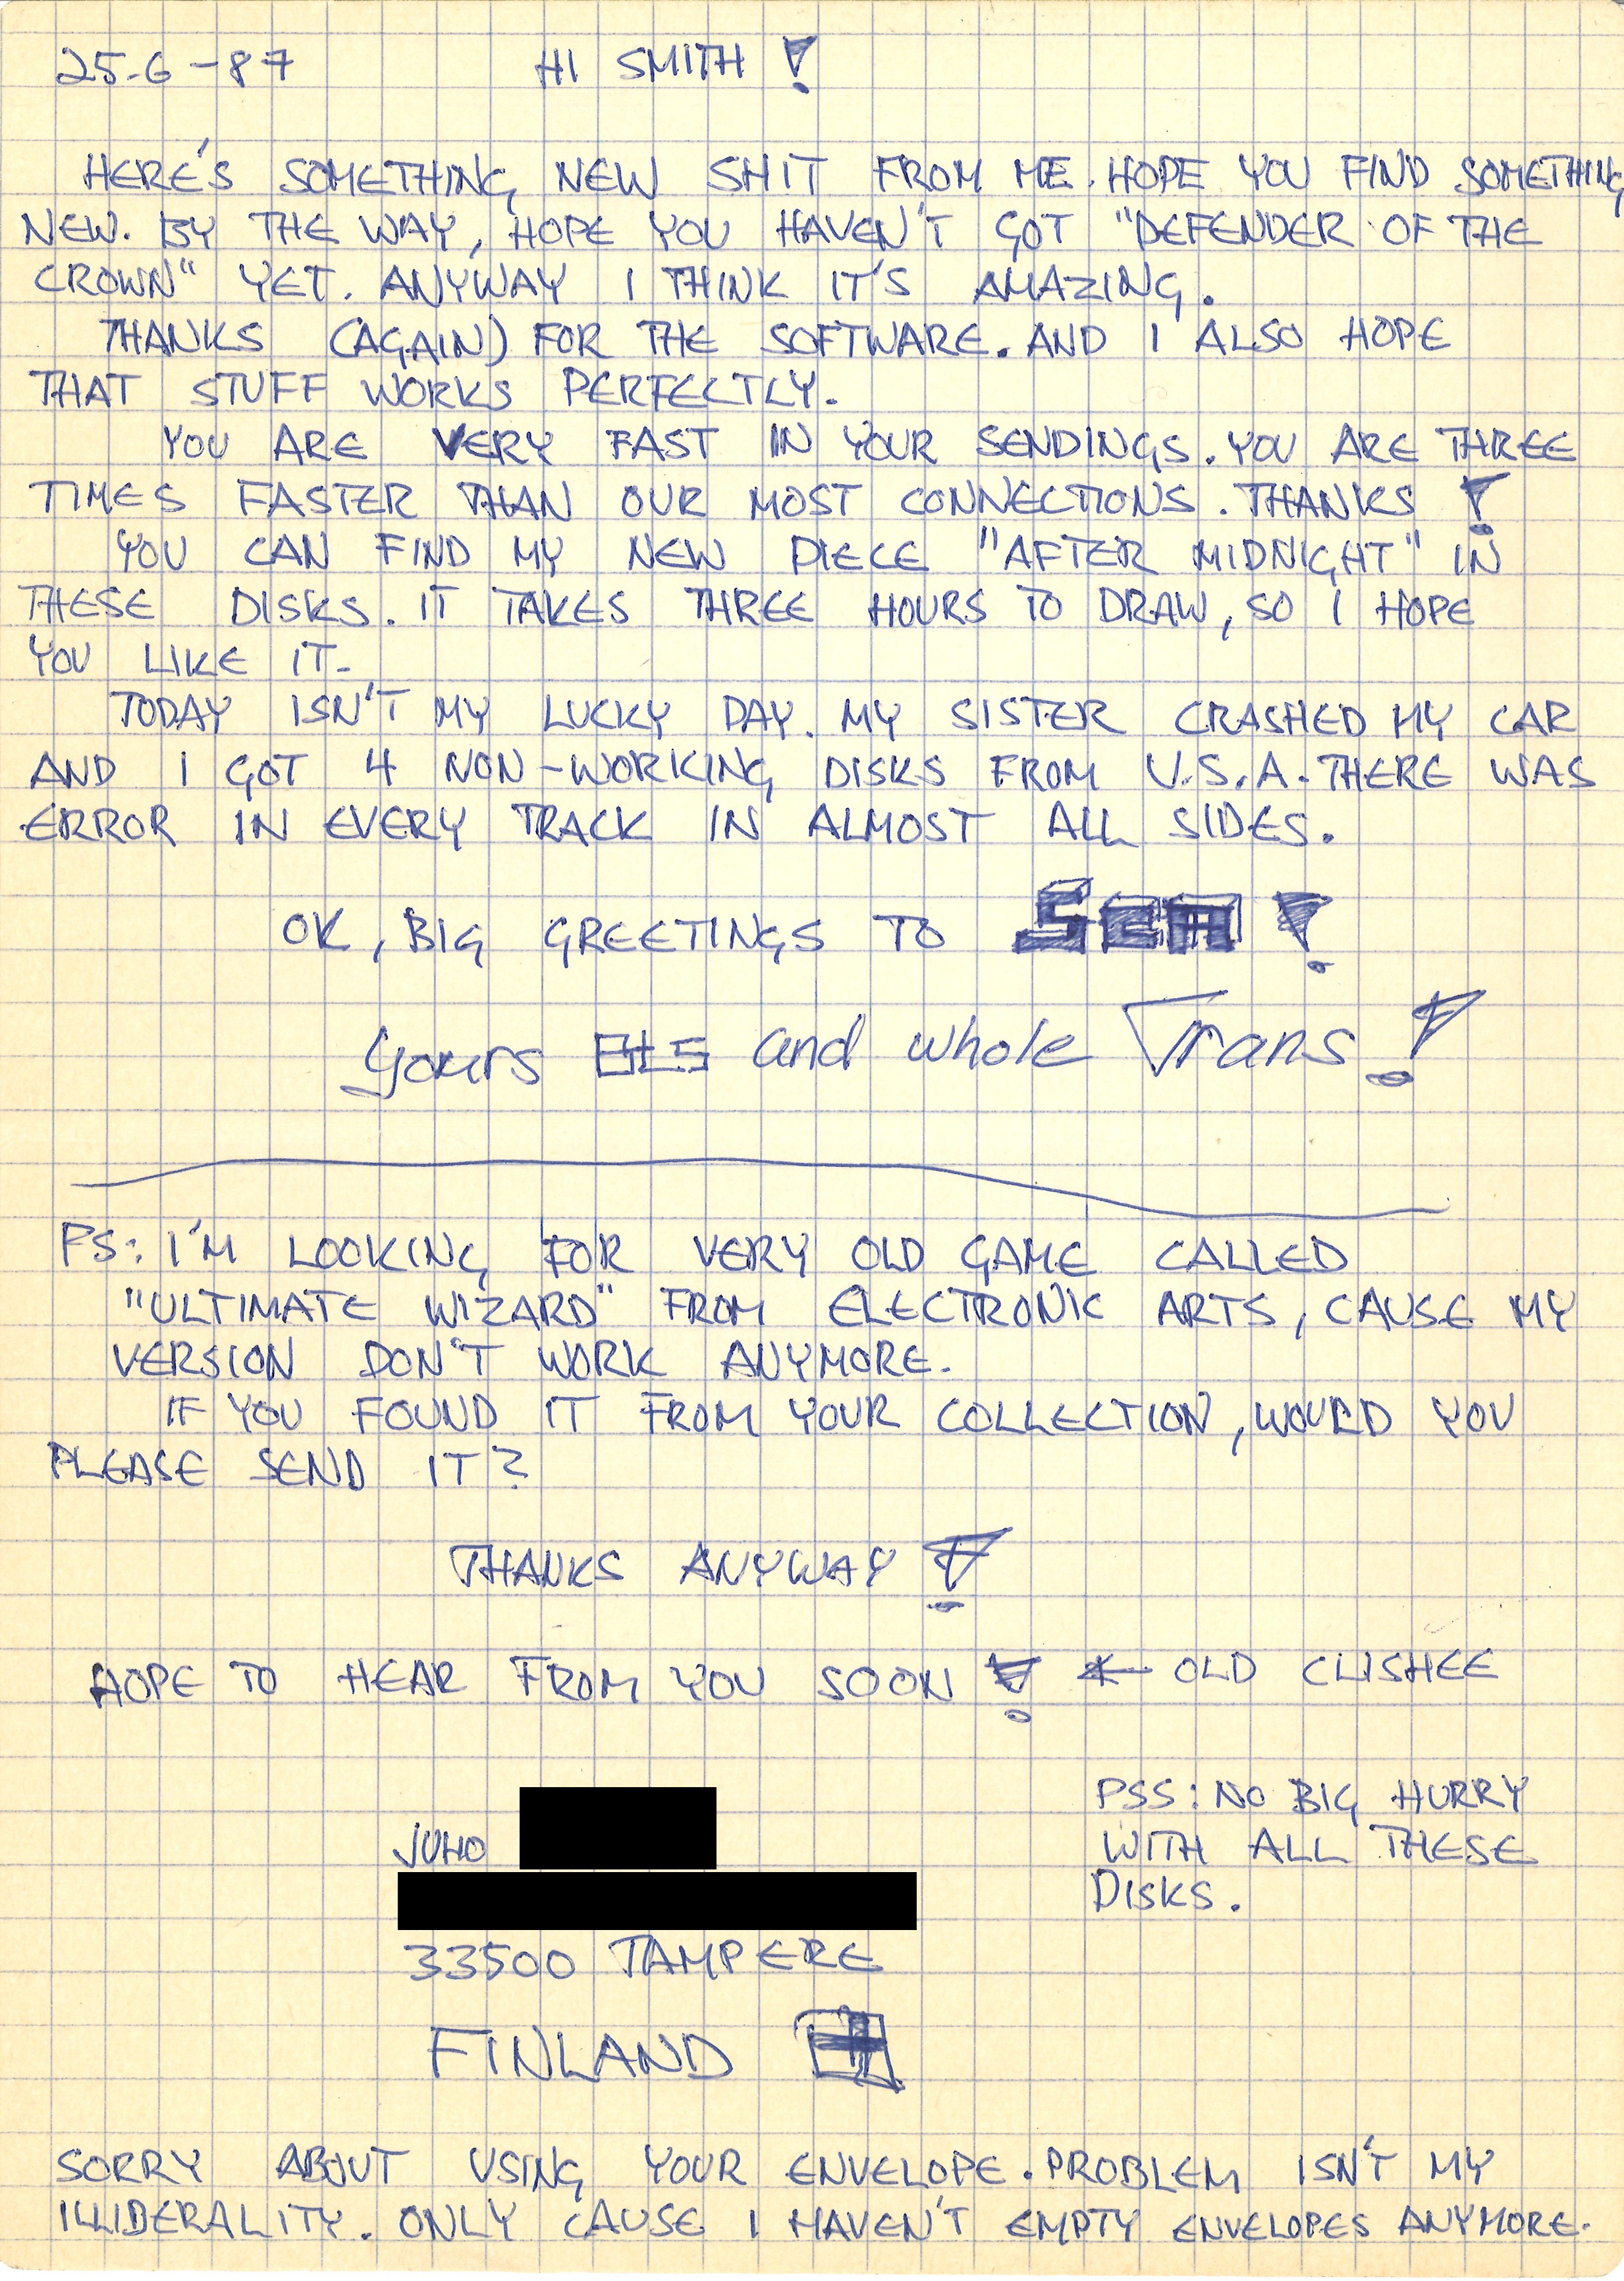 25-6-87 HI SMITH!
HERE'S SOMETHING NEW SHIT FROM ME. HOPE YOU FIND SOMETHING
NEW. BY THE WAY, HOPE YOU HAVEN'T GOT "DEFENDER OF THE
CROWN" YET. ANYWAY I THINK IT'S AMAZING.
THANKS (AGAIN) FOR THE SOFTWARE. AND I ALSO HOPE
THAT STUFF WORKS PERFECTLY.
YOU ARE VERY FAST IN YOUR SENDINGS. YOU ARE THREE
TIMES FASTER THAN OUR MOST CONNECTIONS. THANKS!
YOU CAN FIND MY NEW PIECE "AFTER MIDNIGHT" IN
THESE DISKS. IT TAKES THREE HOURS TO DRAW, SO I HOPE
YOU LIKE IT.
TODAY ISN'T MY LUCKY DAY. MY SISTER CRASHED MY CAR
AND I GOT 4 NON-WORKING DISKS FROM U.S.A. THERE WAS
ERROR IN EVERY TRACK IN ALMOST ALL SIDES.
OK, BIG GREETINGS TO SCA!
Yours and whole Trans!
PS: I'M LOOKING FOR VERY OLD GAME CALLED
"ULTIMATE WIZARD" FROM ELECTRONIC ARTS, CAUSE MY
VERSION DON'T WORK ANYMORE.
IF YOU FOUND IT FROM YOUR COLLECTION, WOULD YOU
PLEASE SEND IT?
THANKS ANYWAY!
HOPE TO HEAR FROM YOU SOON! ← OLD CLISHEE
PSS: NO BIG HURRY
WITH ALL THESE
DISKS.
JUHO
33500 TAMPERE
FINLAND
SORRY ABOUT USING YOUR ENVELOPE. PROBLEM ISN'T MY
ILLIDERALITY. ONLY CAUSE I HAVEN'T EMPTY ENVELOPES ANYMORE.